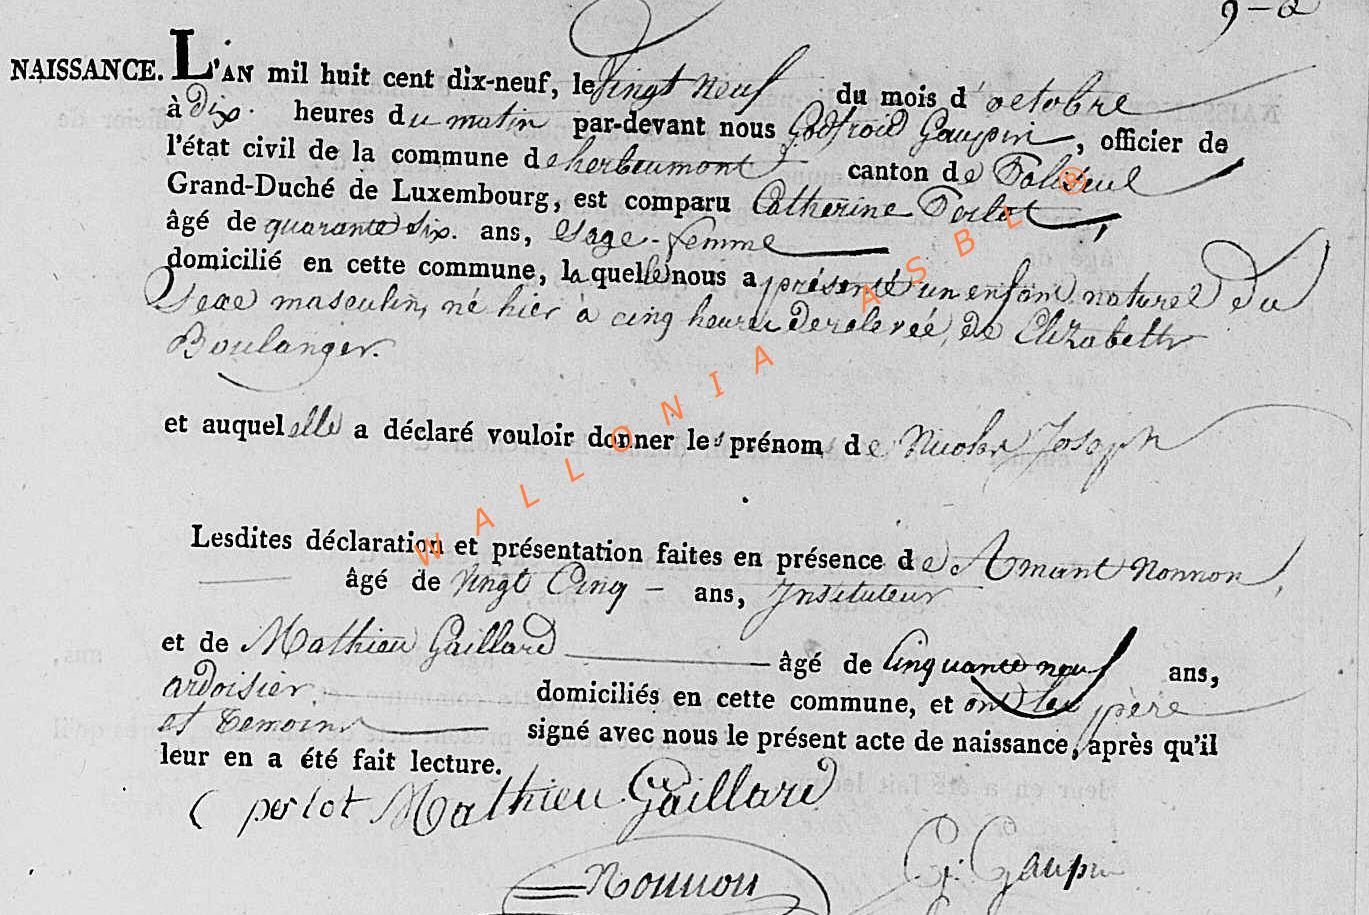 NAISSANCE. L'AN mil huit cent dix-neuf, le vingt neuf du mois d'octobre
à dix heures du matin par-devant nous Godfroid Gaupin, officier de
l'état civil de la commune de herbeumont canton de Paliseul
Grand-Duché de Luxembourg, est comparu Catherine Perlot,
âgé de quarante six ans, Sage-femme
domicilié en cette commune, laquelle nous a présenté un enfant naturel du
Sexe masculin, né hier à cinq heures de relevée, de Elizabeth
Boulanger.
et auquel elle a déclaré vouloir donner les prénom de Nicolas Joseph
Lesdites déclaration et présentation faites en présence de Amant Nonnon,
âgé de vingt Cinq - ans, Instituteur
et de Mathieu Gaillard âgé de Cinquante neuf ans,
ardoisier domiciliés en cette commune, et ont les père
et temoins signé avec nous le présent acte de naissance, après qu'il
leur en a été fait lecture.
C perlot Mathieu Gaillard
Nonnon G. Gaupin
WALLONIA ASBL ®